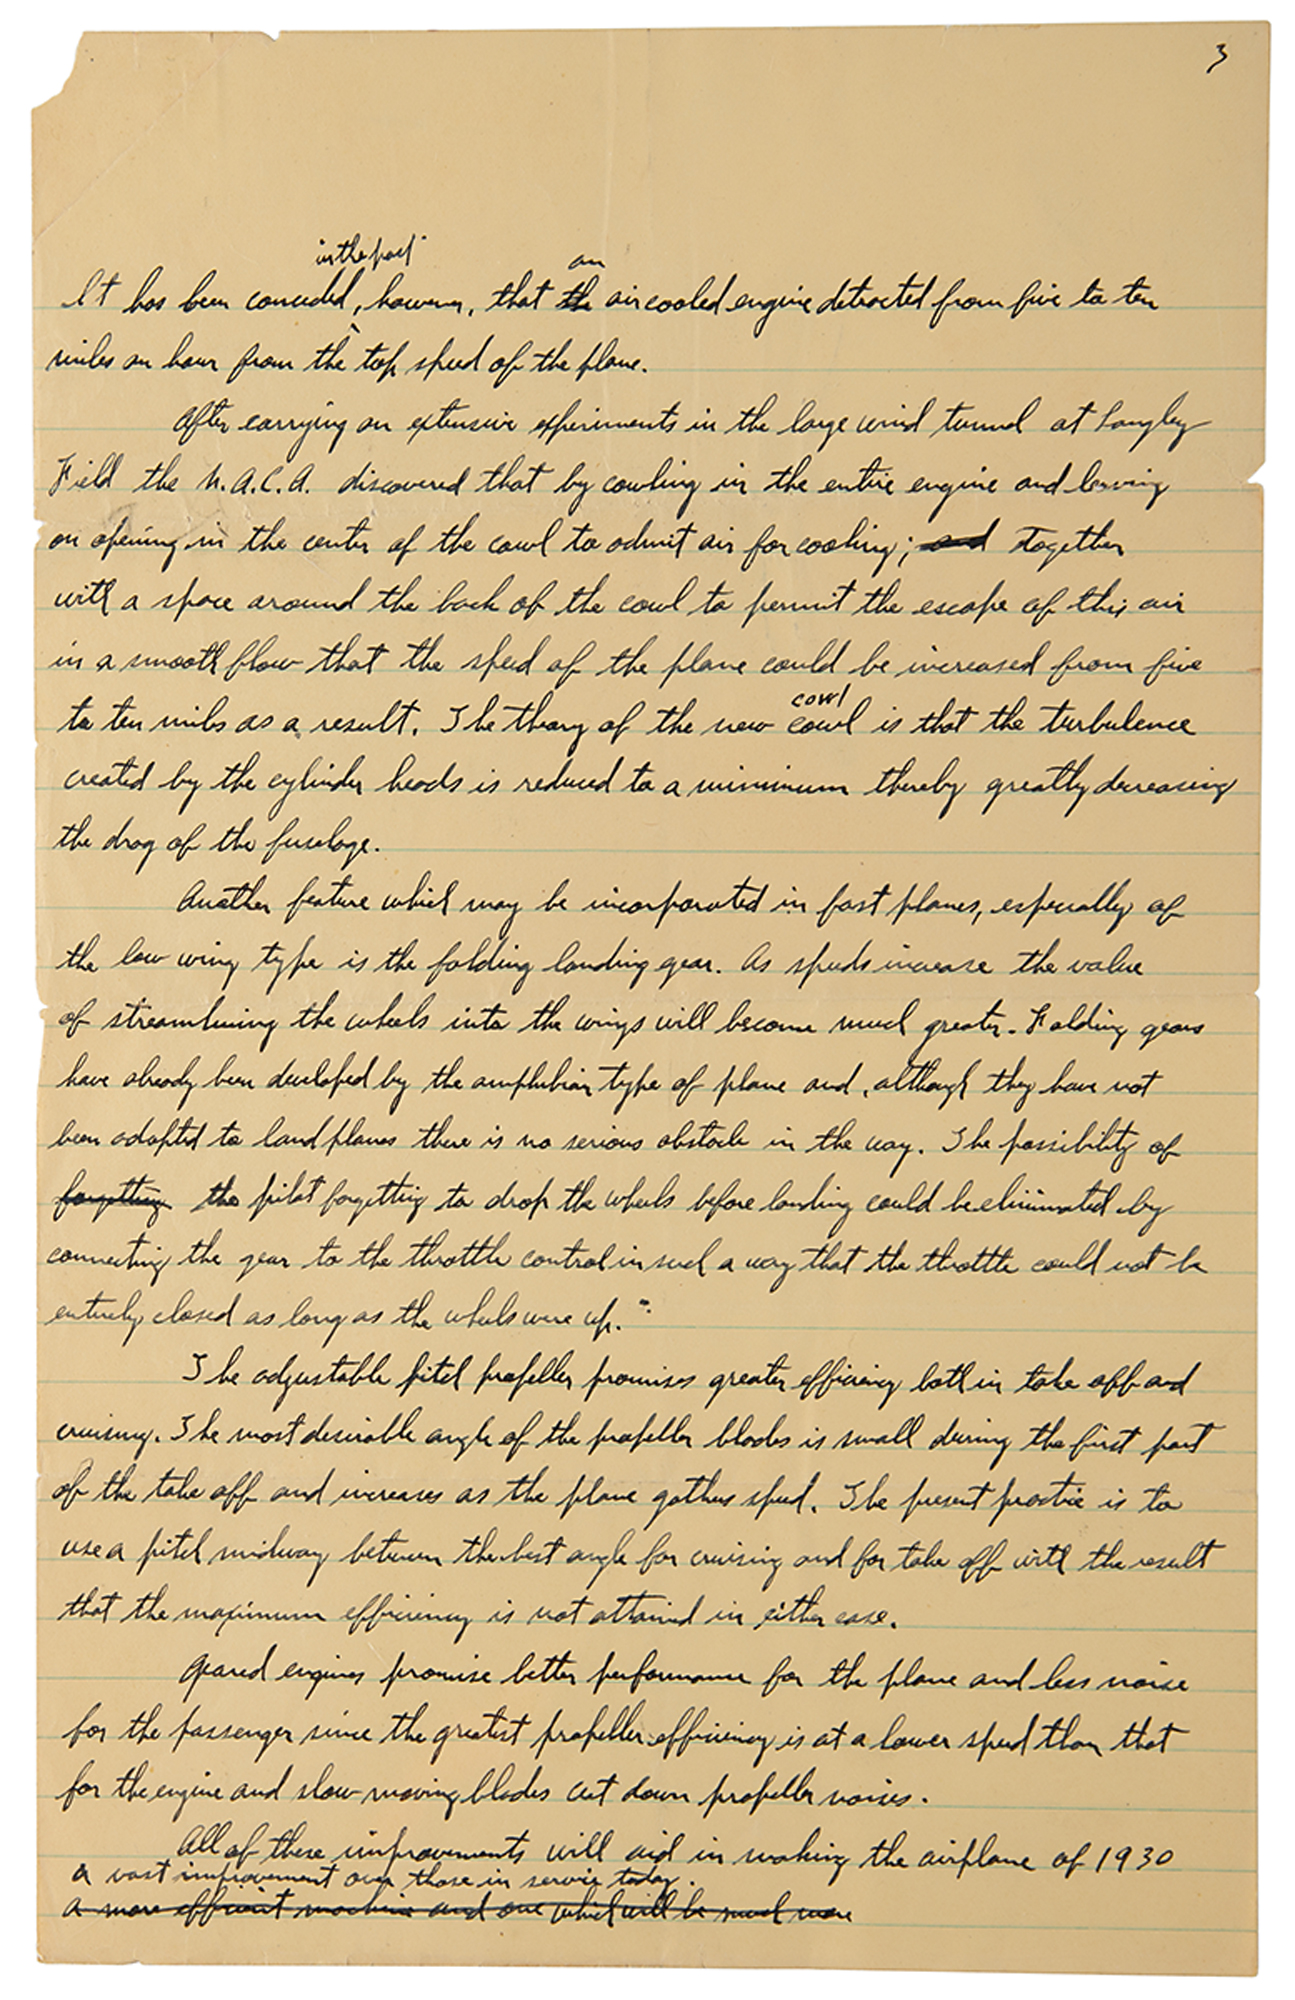 3
in the past
an
It has been conceeded, however, that the air cooled engine detracted from five to ten
miles an hour from the top speed of the plane.
After carrying on extensive experiments in the large wind tunnel at Langley
Field the N.A.C.A. discovered that by cowling in the entire engine and leaving
an opening in the center of the cowl to admit air for cooling; and together
with a space around the back of the cowl to permit the escape of this air
in a smooth flow that the speed of the plane could be increased from five
cowl
to ten miles as a result. The theory of the new cowl is that the turbulence
created by the cylinder heads is reduced to a minimum thereby greatly decreasing
the drag of the fuselage.
Another feature which may be incorporated in fast planes, especially of
the low wing type is the folding landing gear. As speeds increase the value
of streamlining the wheels into the wings will become much greater. Folding gears
have already been developed by the amphibian type of plane and, although they have not
been adapted to land planes there is no serious obstacle in the way. The possibility of
forgetting the pilot forgetting to drop the wheels before landing could be eliminated by
connecting the gear to the throttle control in such a way that the throttle could not be
entirely closed as long as the wheels were up."
The adjustable pitch propeller promises greater efficiency both in take off and
cruising. The most desirable angle of the propeller blades is small during the first part
of the take off and increases as the plane gathers speed. The present practice is to
use a pitch midway between the best angle for cruising and for take off with the result
that the maximum efficiency is not attained in either case.
Geared engines promise better performance for the plane and less noise
for the passenger since the greatest propeller efficiency is at a lower speed than that
for the engine and slow moving blades cut down propeller noises.
All of these improvements will aid in making the airplane of 1930
a vast improvement over those in service today.
a more efficient machine and one which will be much more